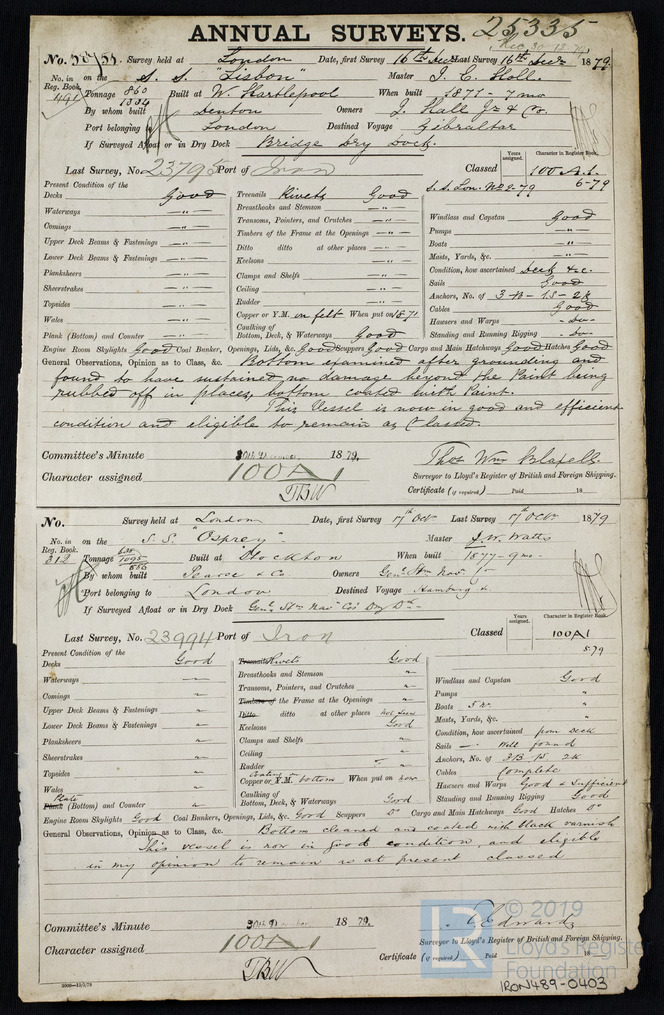 25335
ANNUAL SURVEYS.
Dec 30-12-79
No. 50/51 Survey held at London Date, first Survey 16th Decr Last Survey 16th Decr 1879
No. in Reg. Book. 491 on the S. S. "Lisbon" Master J. C. Holl.
Tonnage 860 1334 Built at W. Hartlepool When built 1871 - 7 mo
By whom built Denton Owners J. Hall Jr & Co.
Port belonging to London Destined Voyage Gibraltar
If Surveyed Afloat or in Dry Dock Bridge Dry Dock.
Last Survey, No. 23795 Port of Iron
Classed Years assigned. Character in Register Book. 100 A1. 6-79
S.S. Lon. No 2-79
Present Condition of the
Decks Good
Waterways — " —
Comings — " —
Upper Deck Beams & Fastenings — " —
Lower Deck Beams & Fastenings — " —
Planksheers — " —
Sheerstrakes — " —
Topsides — " —
Wales — " —
Plank (Bottom) and Counter — " —
Treenails Rivets Good
Breasthooks and Stemson — " —
Transoms, Pointers, and Crutches — " —
Timbers of the Frame at the Openings — " —
Ditto ditto at other places — " —
Keelsons — " —
Clamps and Shelfs — " —
Ceiling — " —
Rudder — " —
Copper or Y.M. on felt When put on 18-71
Caulking of Bottom, Deck, & Waterways Good
Windlass and Capstan Good
Pumps — " —
Boats — " —
Masts, Yards, &c. — " —
Condition, how ascertained Deck &c.
Sails Good
Anchors, No. of 3-B-1S-2K
Cables Good
Hawsers and Warps - Do -
Standing and Running Rigging - Do -
Engine Room Skylights Good Coal Bunker, Openings, Lids, &c. Good Scuppers Good Cargo and Main Hatchways Good Hatches Good
General Observations, Opinion as to Class, &c. Bottom examined after grounding and
found to have sustained no damage beyond the Paint being
rubbed off in places, bottom coated with Paint.
This Vessel is now in good and efficient
condition and eligible to remain as Classed.
Committee's Minute 30th December 1879.
Character assigned 100A1
TBW
Thos Wm
Surveyor to Lloyd's Register of British and Foreign Shipping.
Certificate (if required) Paid 18
No. Survey held at London Date, first Survey 17 Oct Last Survey 17 Octr. 1879
No. in Reg. Book. 312 on the S. S. "Osprey" Master J. W. Watts
Tonnage 1095 Built at Stockton When built 1877-9 mo.
By whom built Pearce & Co Owners Genl. Stm Nav. Co
Port belonging to London Destined Voyage Hamburg
If Surveyed Afloat or in Dry Dock Genl. Stm Nav Cos Dry Dk
Last Survey, No. 23994 Port of Iron
Classed Years assigned. Character in Register Book. 100A1 5.79
Present Condition of the
Decks Good
Waterways "
Comings "
Upper Deck Beams & Fastenings "
Lower Deck Beams & Fastenings "
Planksheers "
Sheerstrakes "
Topsides "
Wales "
Plate Plank (Bottom) and Counter "
Treenails Rivets Good
Breasthooks and Stemson "
Transoms, Pointers, and Crutches "
Timbers of the Frame at the Openings "
Ditto ditto at other places not seen
Keelsons Good
Clamps and Shelfs "
Ceiling "
Rudder "
Coating on Copper or Y.M. bottom When put on now
Caulking of Bottom, Deck, & Waterways Good
Windlass and Capstan Good
Pumps "
Boats 5 "
Masts, Yards, &c. "
Condition, how ascertained from Deck
Sails — Well found
Anchors, No. of 3B 1S 2K
Cables Complete
Hawsers and Warps Good & Sufficient
Standing and Running Rigging Good
Engine Room Skylights Good Coal Bunkers, Openings, Lids, &c. Good Scuppers Do Cargo and Main Hatchways Good Hatches Do
General Observations, Opinion as to Class, &c. Bottom cleaned and coated with black varnish
This vessel is now in good condition, and eligible
in my opinion to remain as at present classed
Committee's Minute 30th December 1879.
Character assigned 100A1
TBW
Edwards
Surveyor to Lloyd's Register of British and Foreign Shipping.
Certificate (if required) Paid 18
LR © 2019
Lloyd's Register
Foundation
IRON489-0403